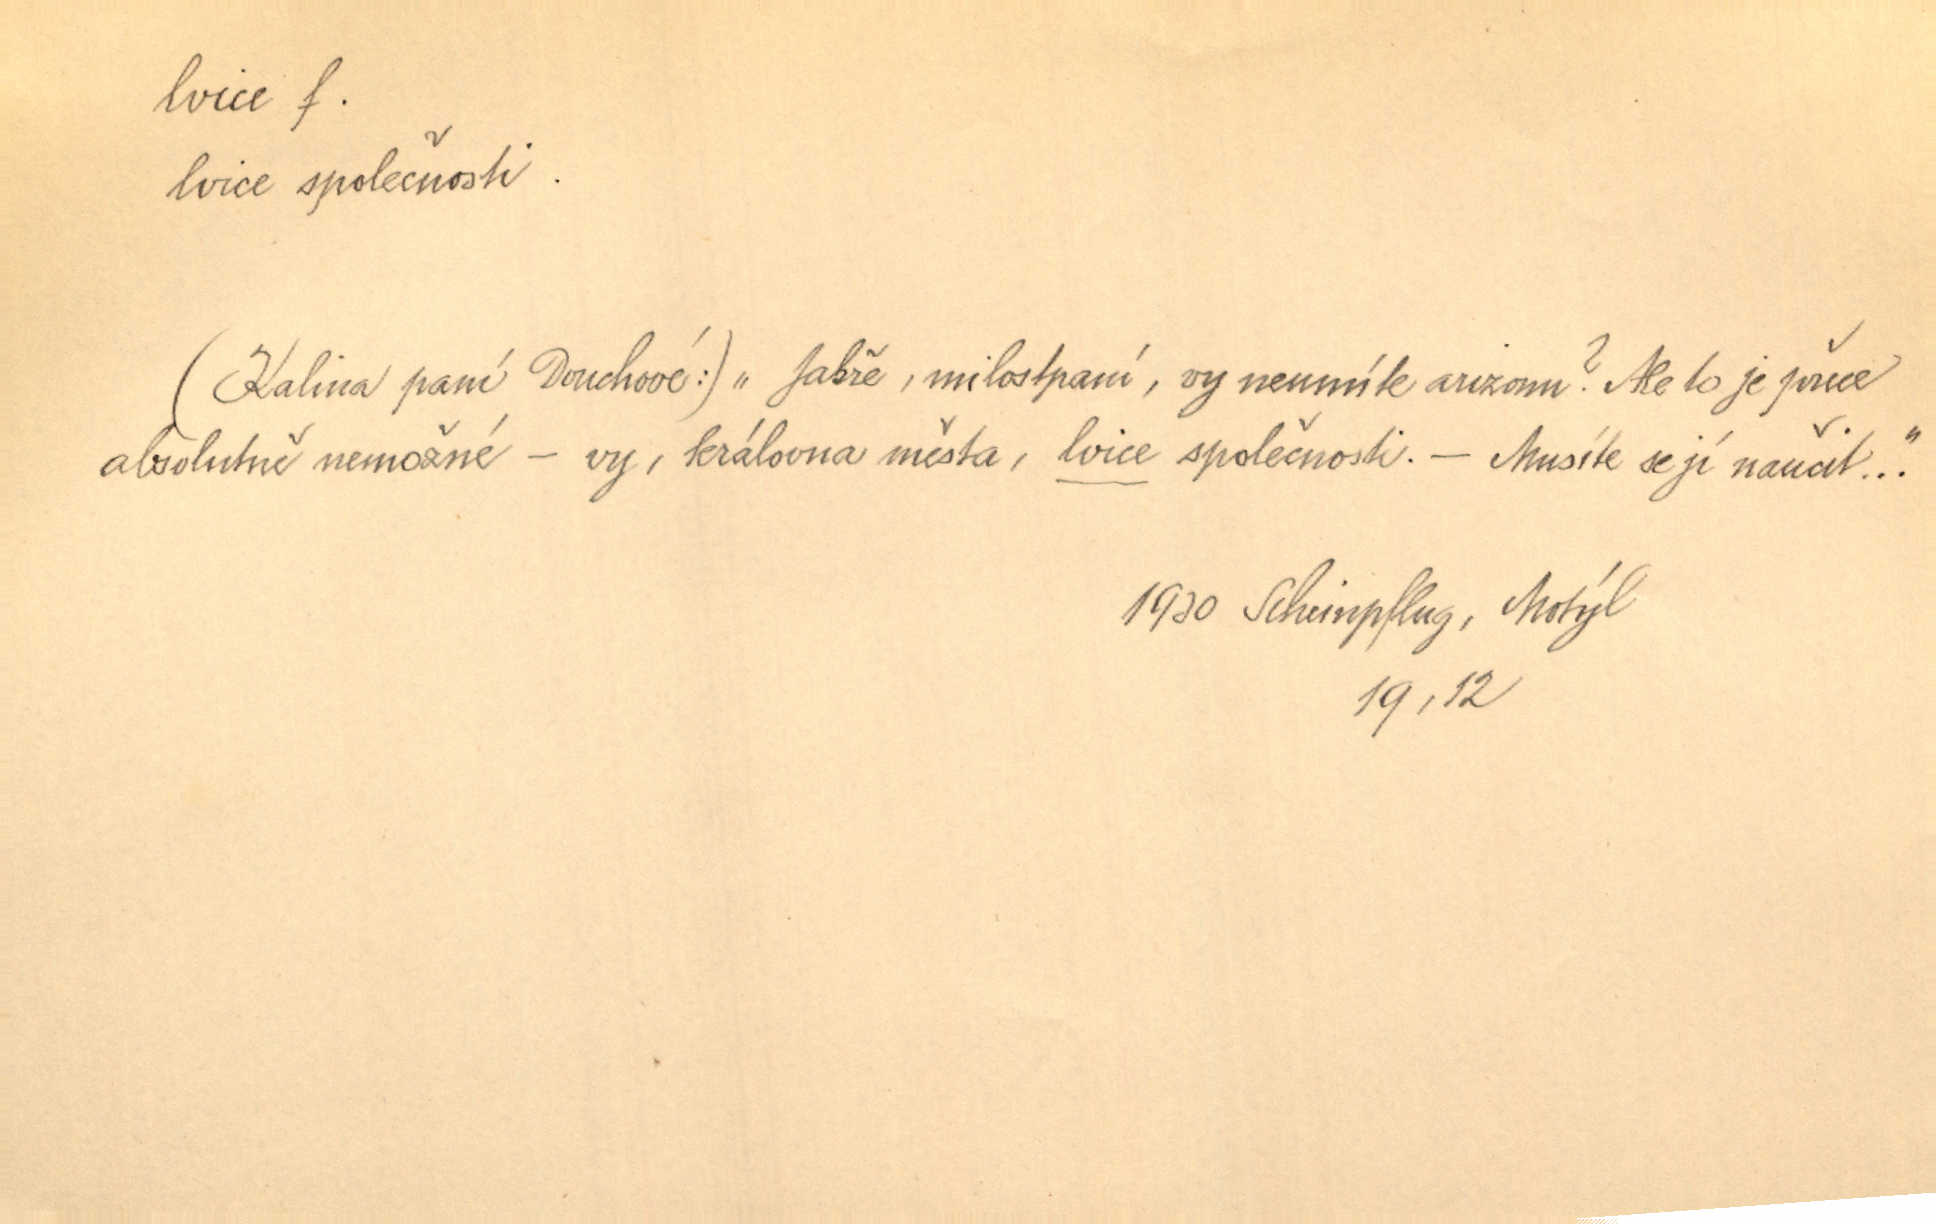 lvice f.
lvice společnosti.
(Kalina paní Douchové:) „Jakže, milostpaní, vy neumíte arizonu? Ale to je přece
absolutně nemožné – vy, královna města, lvice společnosti. – Musíte se jí naučit..."
1930 Scheinpflug, Motýl
19, 12